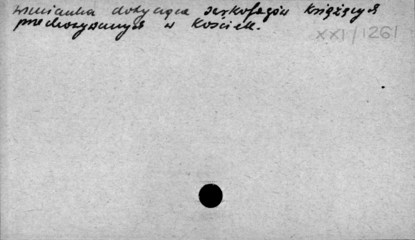 wzmianka dotycząca sarkofagów książęcych
przechowywanych w Kościele.
XXI/1261